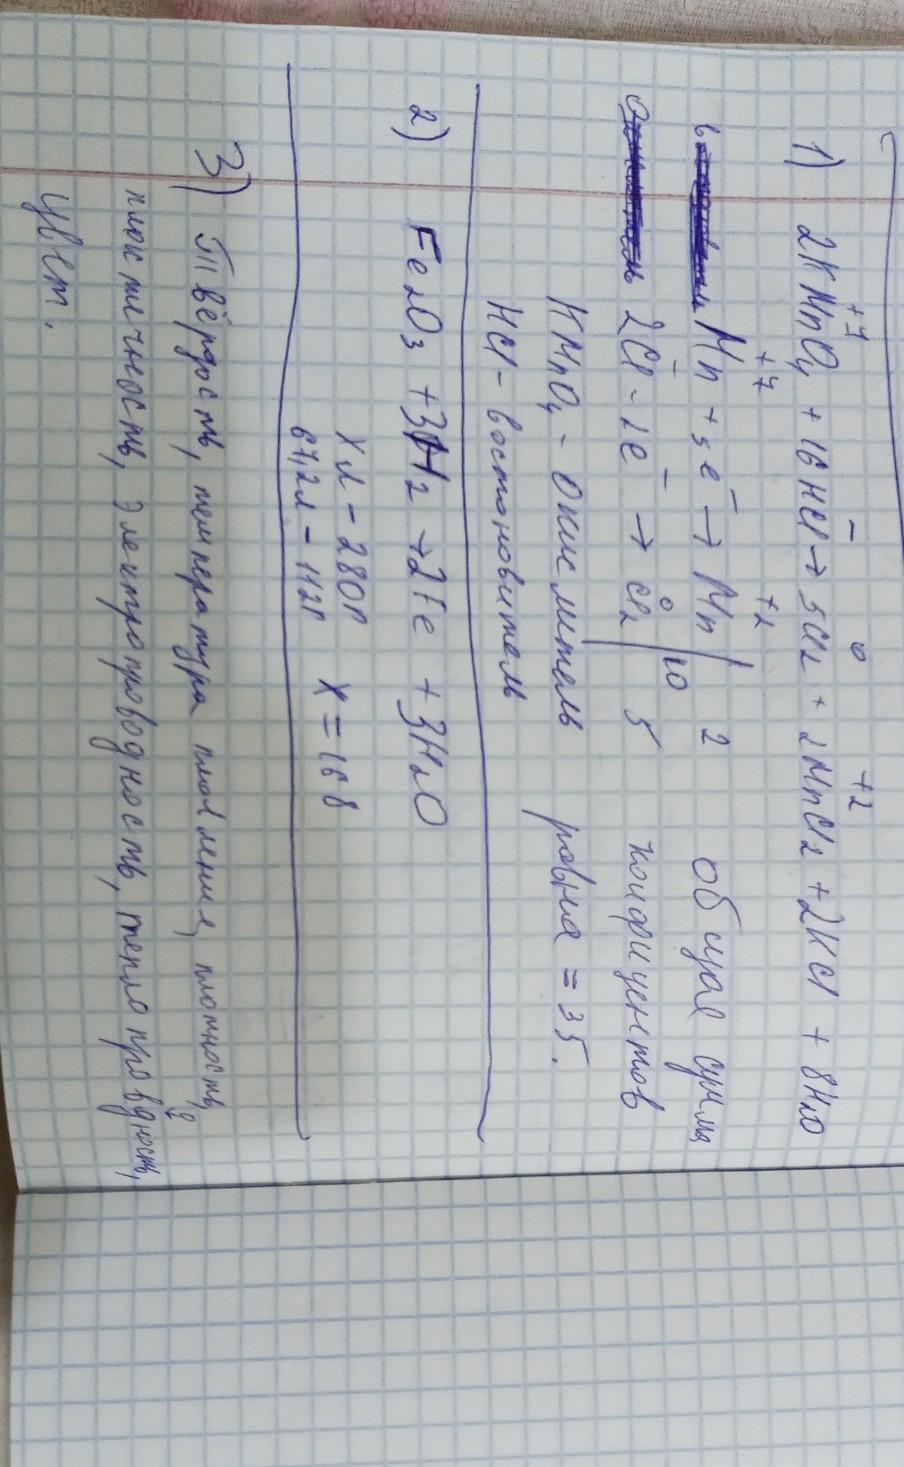 +7 - 0 +2
1) 2KMnO4 + 16HCl → 5Cl2 + 2MnCl2 + 2KCl + 8H2O
+7 +2
Mn + 5e- → Mn | 2 Общае сумма
10
2Cl- - 2e- → Cl2 0 | 5 коифицентов
KMnO4 - Окислитель равна = 35.
HCl - востоновитель
2) Fe2O3 + 3H2 → 2Fe + 3H2O
Xл - 280г X = 168
67,2л - 112г
3) Твёрдость, температура плавления, плотность,
пластичность, электропроводность, теплопроводность,
цвет.